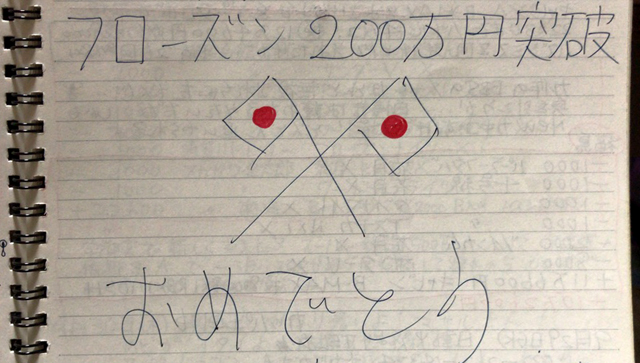 フローズン 200万円突破
おめでとう